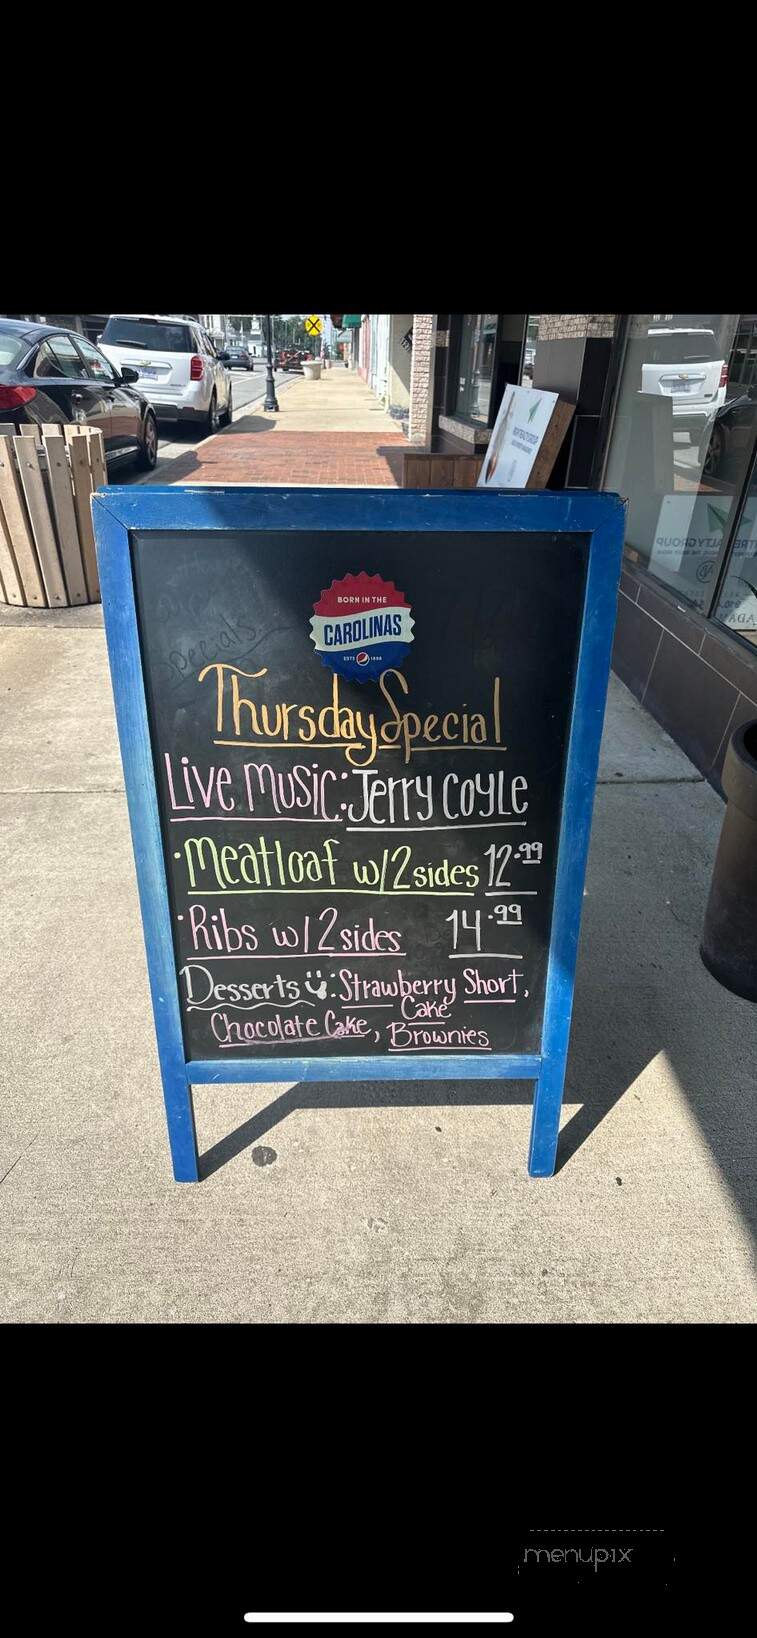 BORN IN THE
CAROLINAS
ESTD 1898
specials
Thursday Special
Live Music: Jerry Coyle
·Meatloaf w/2 sides 12.99
·Ribs w/2 sides 14.99
Desserts: Strawberry Short,
Cake
Chocolate Cake, Brownies
menupix